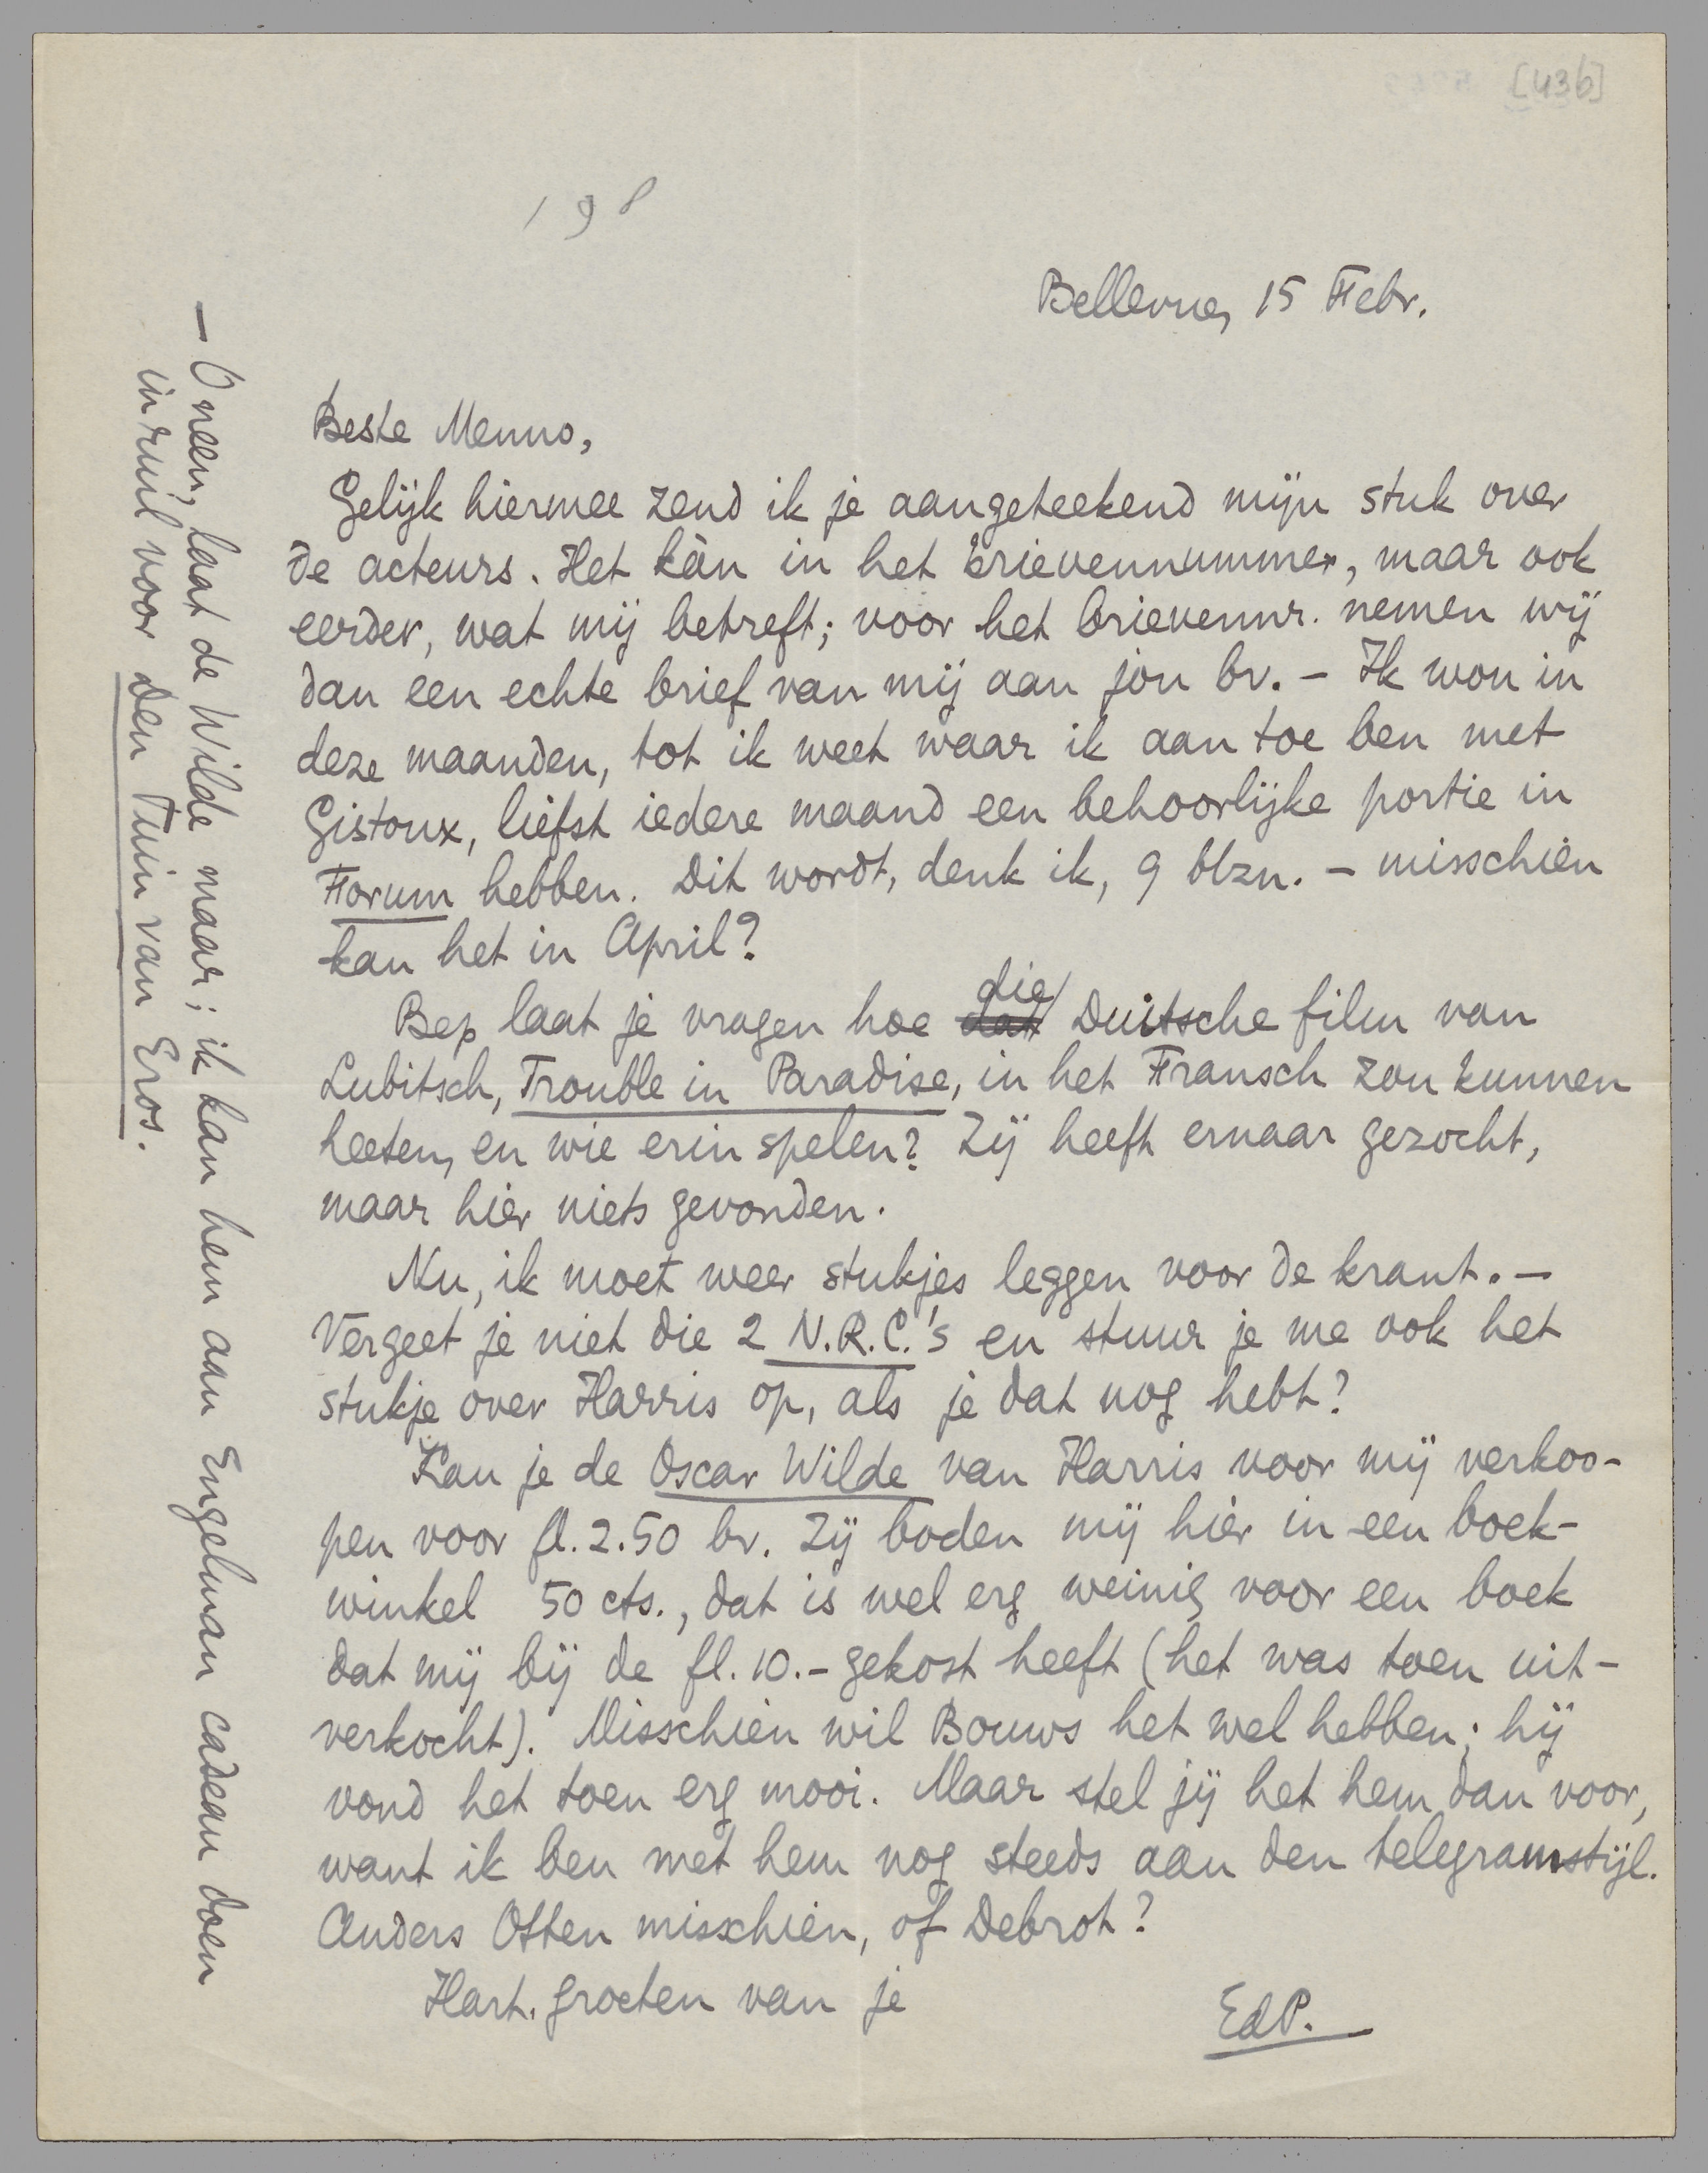 [436]
198
Bellevue, 15 Febr.
Beste Menno,
Gelijk hiermee zend ik je aangeteekend mijn stuk over
de acteurs. Het kàn in het brievennummer, maar ook
eerder, wat mij betreft; voor het brievennr. nemen wij
dan een echte brief van mij aan jou bv. – Ik wou in
deze maanden, tot ik weet waar ik aan toe ben met
Gistoux, liefst iedere maand een behoorlijke portie in
Forum hebben. Dit wordt, denk ik, 9 blzn. – misschien
kan het in April?
Bep laat je vragen hoe dat die Duitsche film van
Lubitsch, Trouble in Paradise, in het Fransch zou kunnen
heeten, en wie erin spelen? Zij heeft ernaar gezocht,
maar hier niets gevonden.
Nu, ik moet weer stukjes leggen voor de krant. –
Vergeet je niet die 2 N.R.C.'s en stuur je me ook het
stukje over Harris op, als je dat nog hebt?
Kan je de Oscar Wilde van Harris voor mij verkoo-
pen voor fl. 2.50 bv. Zij boden mij hier in een boek-
winkel 50 cts., dat is wel erg weinig voor een boek
dat mij bij de fl. 10.– gekost heeft (het was toen uit-
verkocht). Misschien wil Bouws het wel hebben; hij
vond het toen erg mooi. Maar stel jij het hem dan voor,
want ik ben met hem nog steeds aan den telegramstijl.
Anders Otten misschien, of Debrot?
Hart. groeten van je
EdP.
– O neen, laat de Wilde maar; ik kan hem aan Engelman cadeau doen
in ruil voor Den Tuin van Eros.